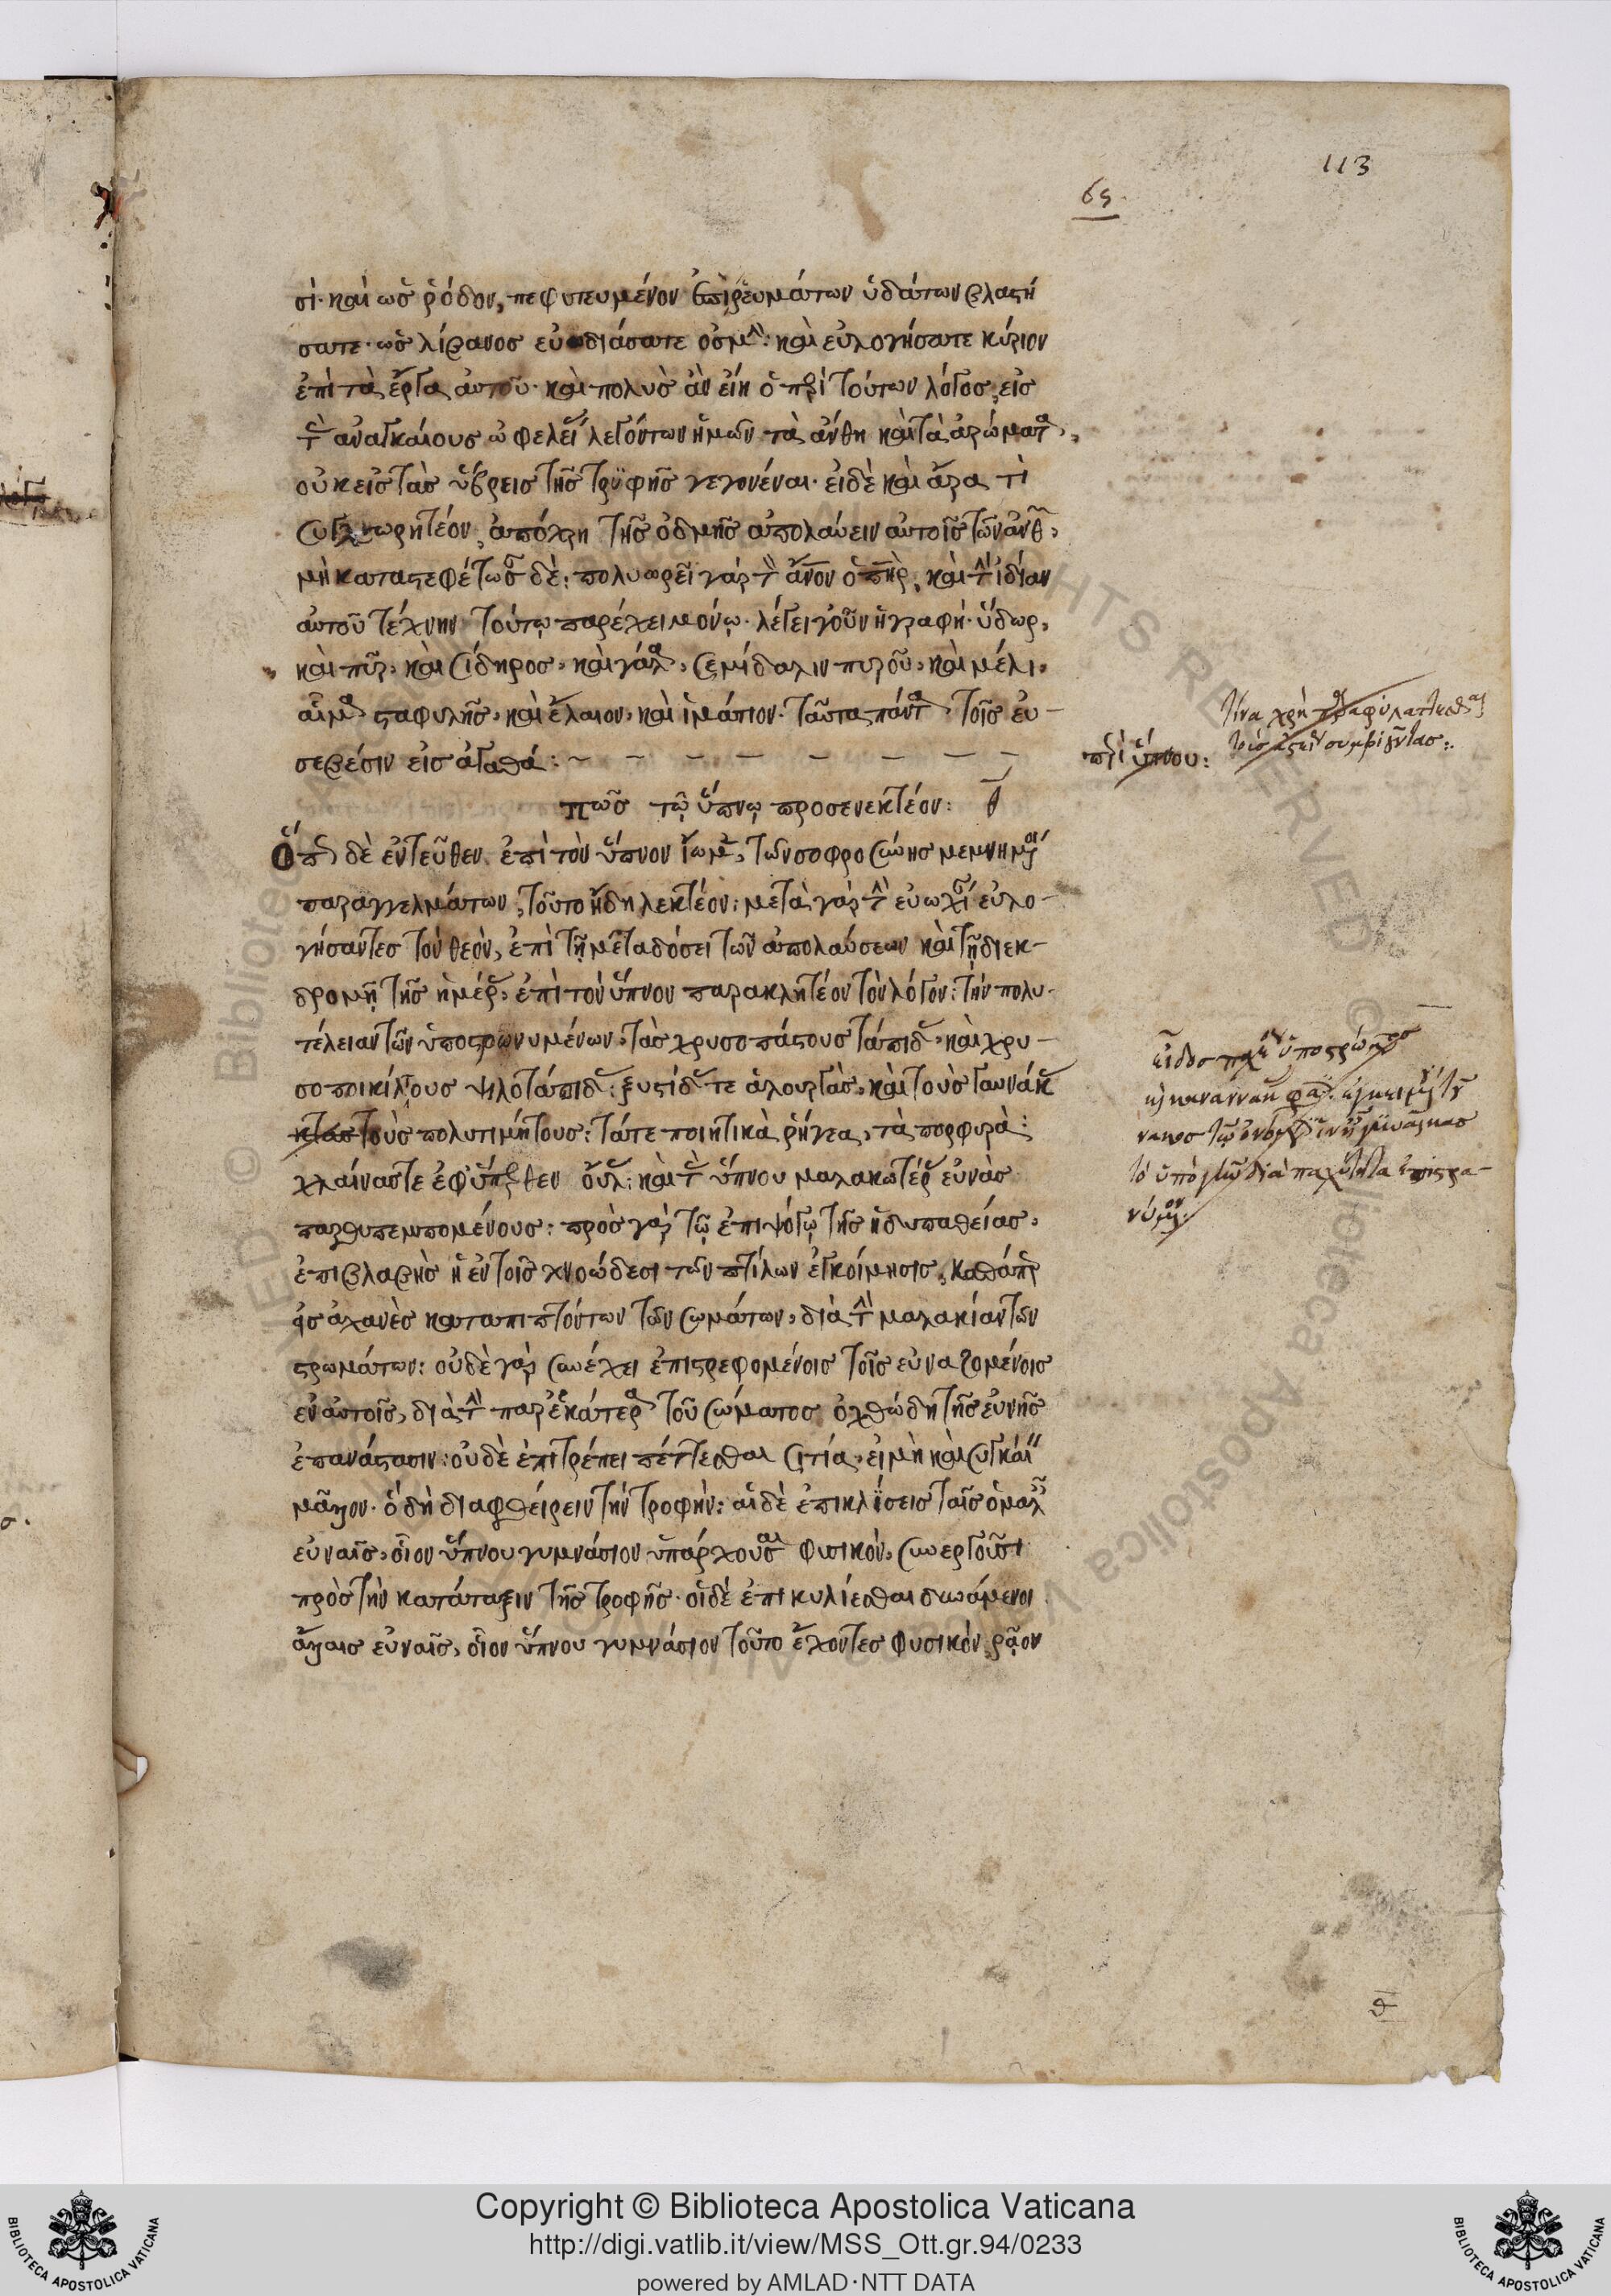 113
65.
σί· καὶ ὡς ῥόδον, πεφυτευμένον ἐπὶ ῥευμάτων ὑδάτων βλαστή
σατε· ὡς λίβανος εὐωδιάσατε ὀσμὴν: καὶ εὐλογήσατε κύριον
ἐπὶ τὰ ἔργα αὐτοῦ· καὶ πολὺς ἂν εἴη ὁ περὶ τούτων λόγος, εἰς
τὰς ἀναγκαίους ὠφελείας λεγόντων ἡμῶν τὰ ἄνθη καὶ τὰ ἀρώματα,
οὐκ εἰς τὰς ὕβρεις τῆς τρυφῆς γεγονέναι· εἰ δὲ καὶ ἄρα τὶ
συγχωρητέον, ἀπόχρη τῆς ὀδμῆς ἀπολαύειν αὐτοῖς τῶν ἀνθῶν,
μὴ καταστεφέτωσαν δὲ: πολυωρεῖ γὰρ τὸν ἄνον ὁ πηρ, καὶ τὴν ἰδίαν
αὐτοῦ τέχνην τούτῳ παρέχει μόνῳ· λέγει γοῦν ἡ γραφή· ὕδωρ,
καὶ πῦρ, καὶ σίδηρος, καὶ γάλα, σεμίδαλιν πυροῦ, καὶ μέλι,
αἷμα σταφυλῆς, καὶ ἔλαιον, καὶ ἱμάτιον· ταῦτα πάντα τοῖς εὐ-
σεβέσιν εἰς ἀγαθά:
περὶ ὕπνου:
πῶς τῷ ὕπνῳ προσενεκτέον: θ
Ὅπως δὲ ἐντεῦθεν ἐπὶ τὸν ὕπνον ἴωμεν, τῶν σωφροσύνης μεμνημένοι
παραγγελμάτων, τοῦτο ἤδη λεκτέον: μετὰ γὰρ τὴν εὐωχίαν εὐλο-
γήσαντες τὸν θεὸν, ἐπὶ τῇ μεταδόσει τῶν ἀπολαύσεων καὶ τῇ διεκ-
δρομῇ τῆς ἡμέρας, ἐπὶ τὸν ὕπνον παρακλητέον τὸν λόγον: τὴν πολυ-
τέλειαν τῶν ὑποστρωννυμένων, τὰς χρυσοπάστους τάπιδας, καὶ χρυ-
σοποικίλτους ψιλοτάπιδας: ξυστίδας τε ἁλουργὰς, καὶ τοὺς γαυνάκας
τοὺς πολυτιμήτους: τά τε ποιητικὰ ῥήγεα, τὰ πορφυρᾶ:
χλαίνας τε ἐφύπερθεν οὔλας: καὶ τὰς ὕπνου μαλακωτέρας εὐνὰς
παραθυπεμπομένους: πρὸς γὰρ τῷ ἐπιψόγῳ τῆς ἡδυπαθείας,
ἐπιβλαβὴς ἡ ἐν τοῖς χνοώδεσι τῶν πτίλων ἐγκοίμησις, καθάπερ
εἰς ἀχανὲς καταπιπτόντων τῶν σωμάτων, διὰ τὴν μαλακίαν τῶν
στρωμάτων: οὐδὲ γὰρ συνέχει ἐπιστρεφομένοις τοῖς εὐναζομένοις
ἐν αὐτοῖς, διὰ τὴν παρ' ἑκάτερα τοῦ σώματος ὀχθώδη τῆς εὐνῆς
ἐπανάστασιν: οὐδὲ ἐπιτρέπει πέττεσθαι σιτία, εἰ μὴ καὶ συγκάειν
μᾶλλον· ὃ δὴ διαφθείρειν τὴν τροφήν: αἱ δὲ ἐπικλίσεις ταῖς ὁμαλαῖς
εὐναῖς, οἷον ὕπνου γυμνάσιον ὑπάρχουσαι φυσικὸν, συνεργοῦσι
πρὸς τὴν κατάταξιν τῆς τροφῆς· οἱ δὲ ἐπικυλίεσθαι δυνάμενοι
ἄλλαις εὐναῖς, οἷον ὕπνου γυμνάσιον τοῦτο ἔχοντες φυσικὸν, ῥᾷον
Copyright © Biblioteca Apostolica Vaticana
http://digi.vatlib.it/view/MSS_Ott.gr.94/0233
powered by AMLAD·NTT DATA
BIBLIOTECA APOSTOLICA VATICANA
BIBLIOTECA APOSTOLICA VATICANA